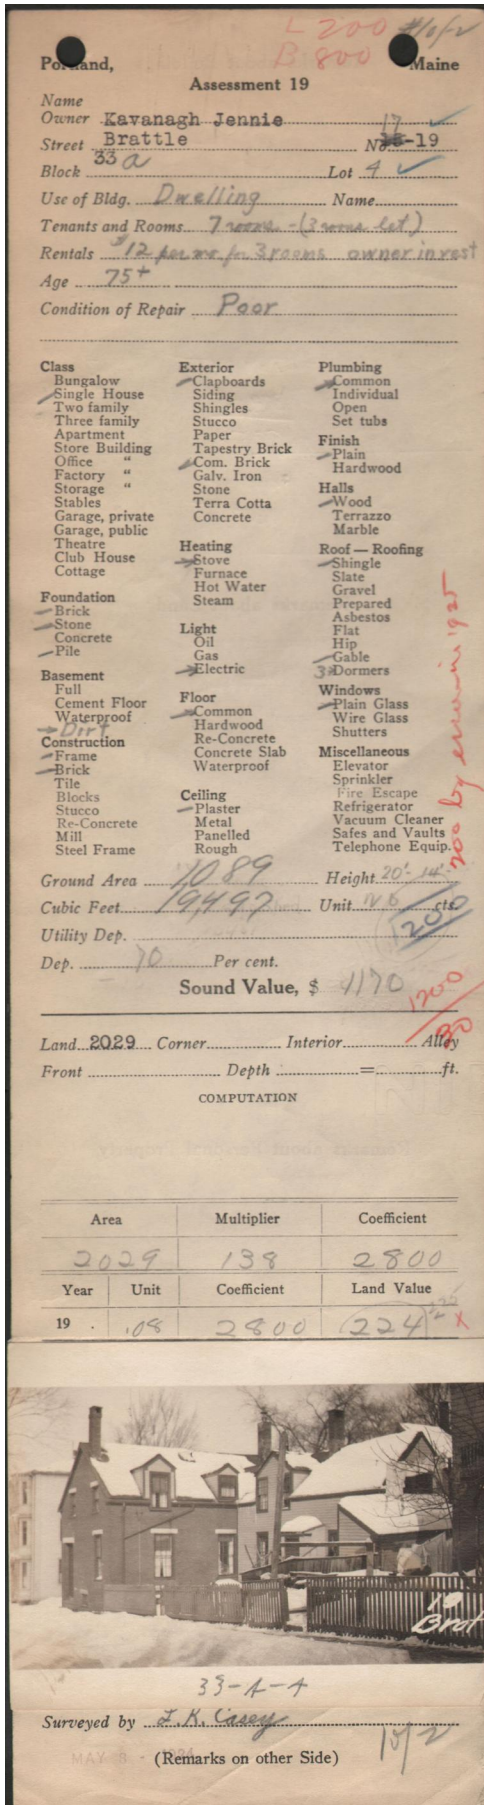 L 200
B 800
Portland, Maine
Assessment 19
Name
Owner Kavanagh Jennie
17
Street Brattle No -19
Block 33 a Lot 4
Use of Bldg. Dwelling Name
Tenants and Rooms 7 rooms - (3 rooms let)
Rentals $12 per mo for 3 rooms owner in rest
Age 75+
Condition of Repair Poor
Class
Bungalow
Single House
Two family
Three family
Apartment
Store Building
Office "
Factory "
Storage "
Stables
Garage, private
Garage, public
Theatre
Club House
Cottage
Foundation
Brick
Stone
Concrete
Pile
Basement
Full
Cement Floor
Waterproof
Dirt
Construction
Frame
Brick
Tile
Blocks
Stucco
Re-Concrete
Mill
Steel Frame
Exterior
Clapboards
Siding
Shingles
Stucco
Paper
Tapestry Brick
Com. Brick
Galv. Iron
Stone
Terra Cotta
Concrete
Heating
Stove
Furnace
Hot Water
Steam
Light
Oil
Gas
Electric
Floor
Common
Hardwood
Re-Concrete
Concrete Slab
Waterproof
Ceiling
Plaster
Metal
Panelled
Rough
Plumbing
Common
Individual
Open
Set tubs
Finish
Plain
Hardwood
Halls
Wood
Terrazzo
Marble
Roof — Roofing
Shingle
Slate
Gravel
Prepared
Asbestos
Flat
Hip
Gable
3 Dormers
Windows
Plain Glass
Wire Glass
Shutters
Miscellaneous
Elevator
Sprinkler
Fire Escape
Refrigerator
Vacuum Cleaner
Safes and Vaults
Telephone Equip.
200 by error in 1925
Ground Area 1089 Height 20'-14'
Cubic Feet 19497 Unit cts.
1200
Utility Dep.
Dep. 70 Per cent.
Sound Value, $ 1170
1200
Land 2029 Corner Interior Alley
Front Depth = ft.
COMPUTATION
Area Multiplier Coefficient
2029 138 2800
Year Unit Coefficient Land Value
19 . .08 2800 224 x
19
Brat
33-A-4
Surveyed by L.K. Casey
MAY 8 - 1924
(Remarks on other Side)
10/2